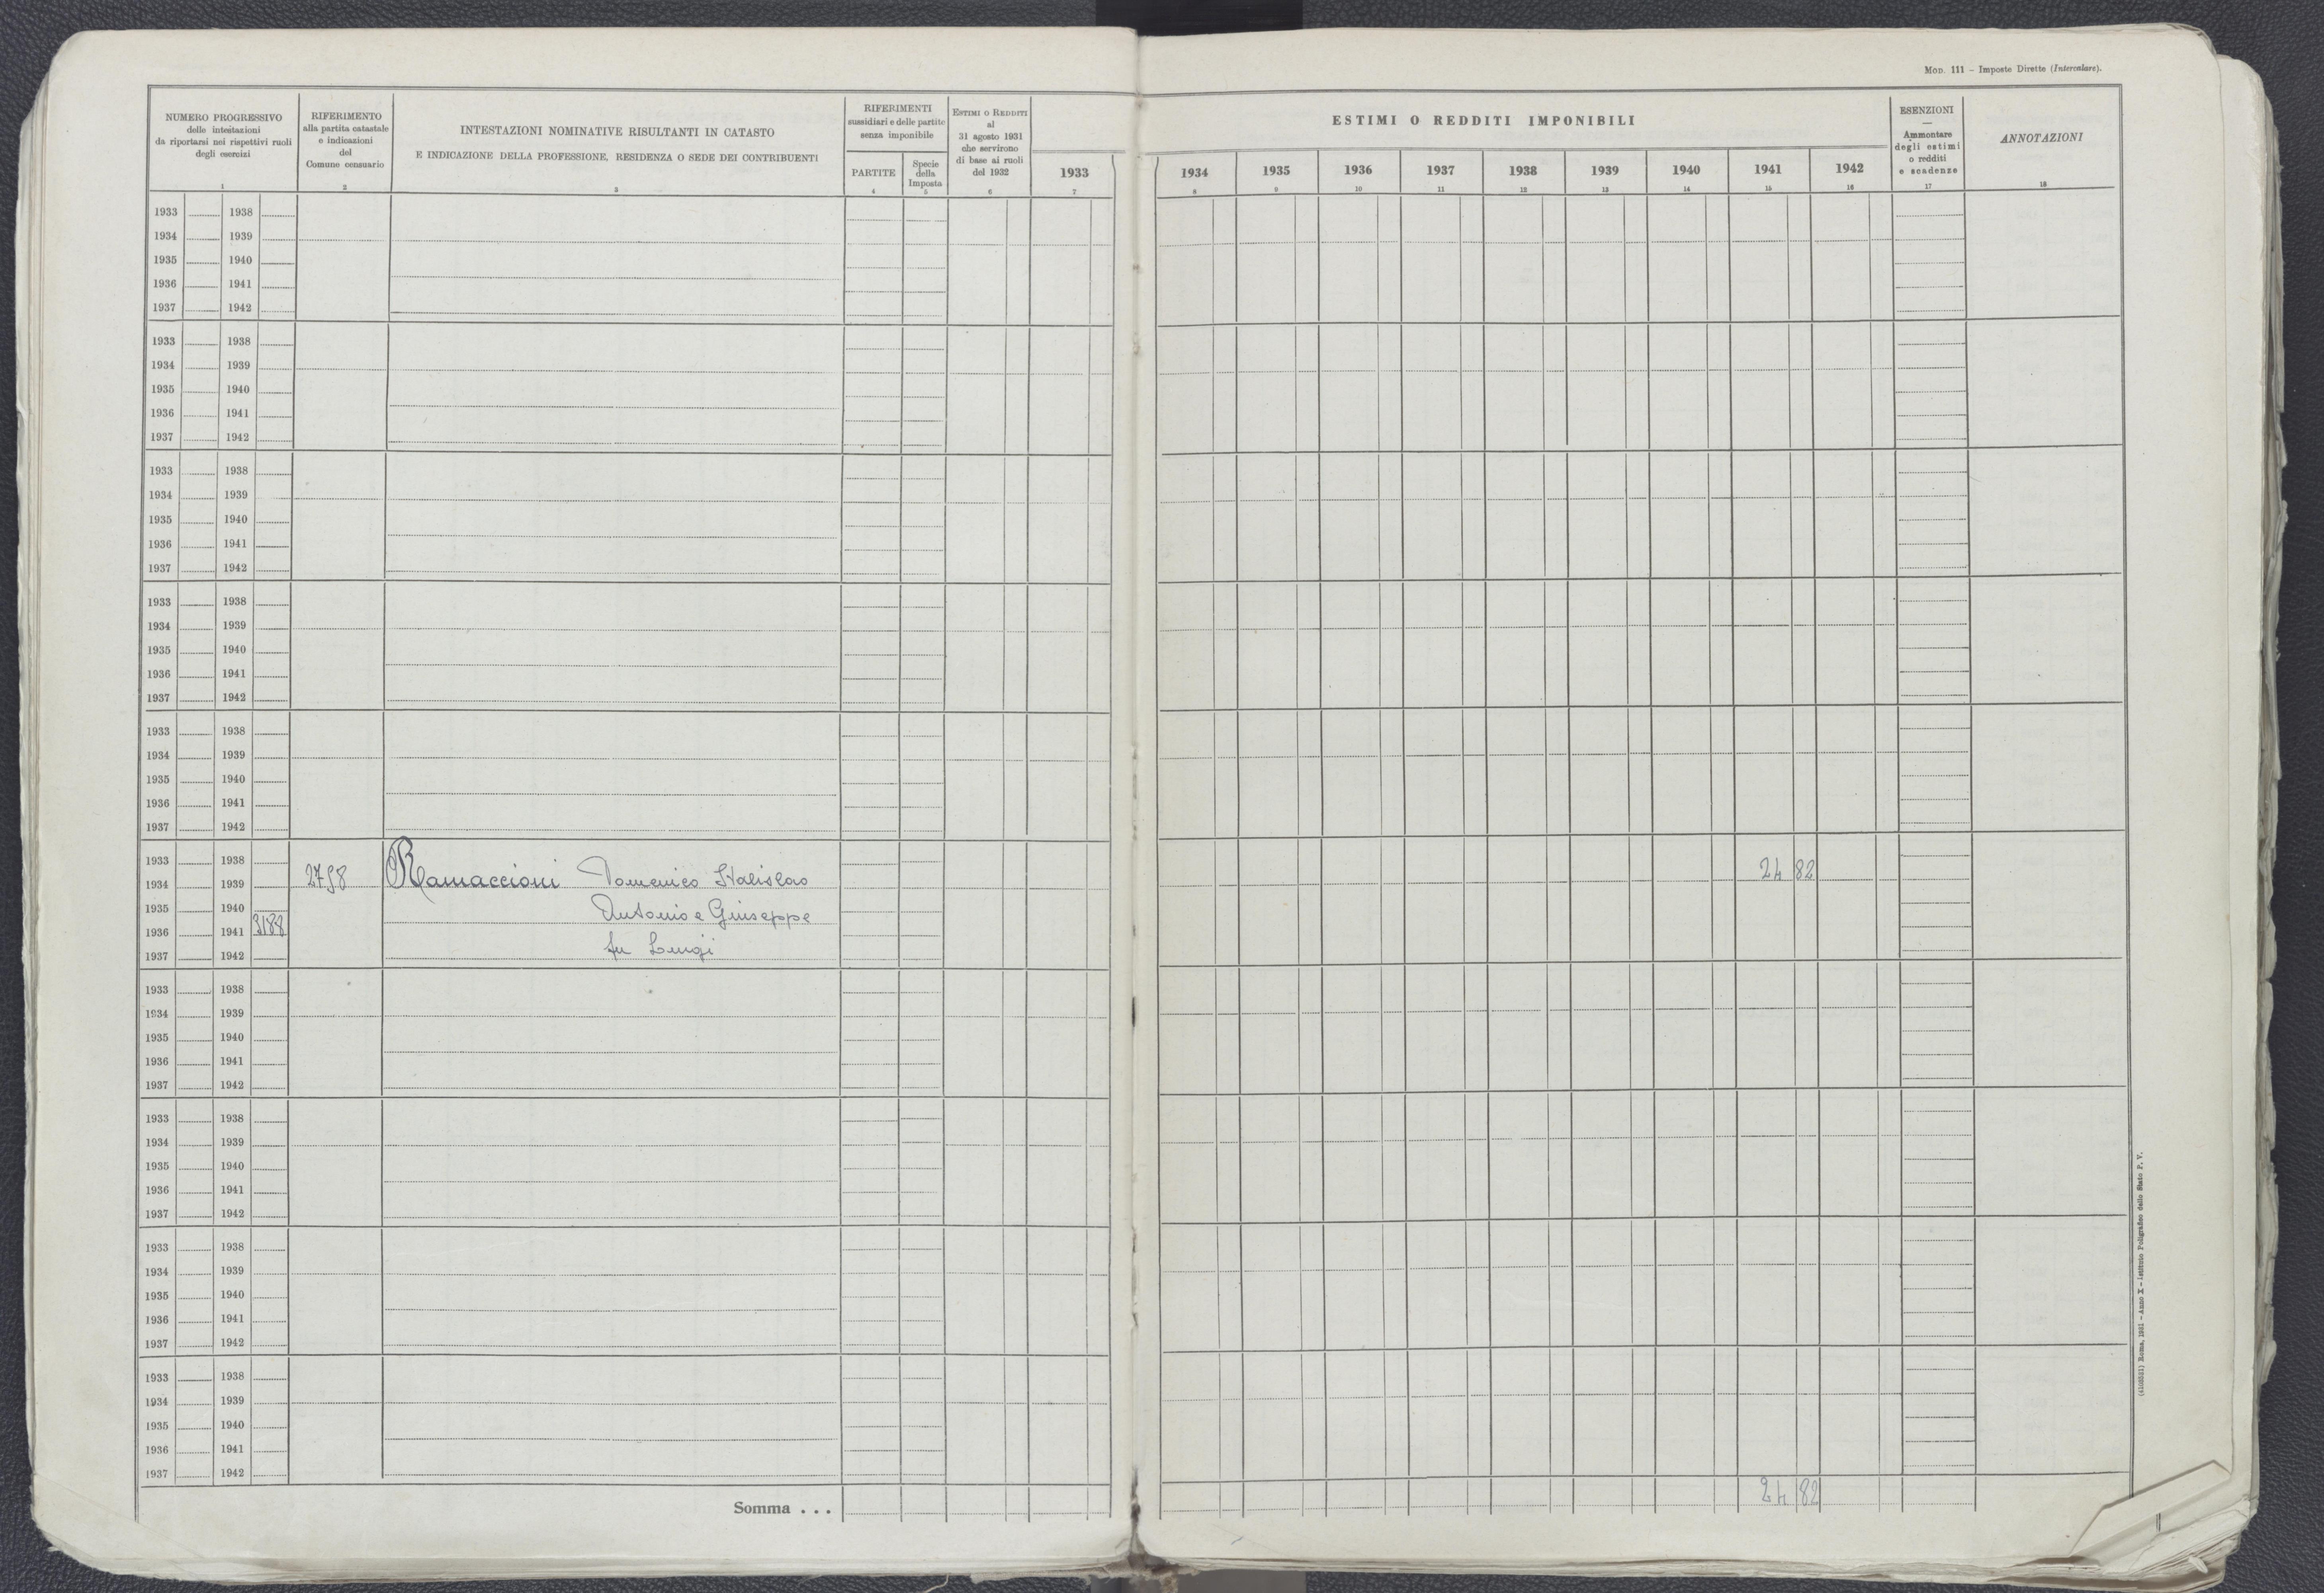 Mod. 111 – Imposte Dirette (Intercalare).
NUMERO PROGRESSIVO
delle intestazioni
da riportarsi nei rispettivi ruoli
degli esercizi
1
RIFERIMENTO
alla partita catastale
e indicazioni
del
Comune censuario
2
INTESTAZIONI NOMINATIVE RISULTANTI IN CATASTO
E INDICAZIONE DELLA PROFESSIONE, RESIDENZA O SEDE DEI CONTRIBUENTI
3
RIFERIMENTI
sussidiari e delle partite
senza imponibile
PARTITE
4
Specie
della
Imposta
5
Estimi o Redditi
al
31 agosto 1931
che servirono
di base ai ruoli
del 1932
6
1933
7
ESTIMI O REDDITI IMPONIBILI
1934 1935 1936 1937 1938 1939 1940 1941 1942
8 9 10 11 12 13 14 15 16
ESENZIONI
—
Ammontare
degli estimi
o redditi
e scadenze
17
ANNOTAZIONI
18
1933 1938
1934 1939
1935 1940
1936 1941
1937 1942
1933 1938
1934 1939
1935 1940
1936 1941
1937 1942
1933 1938
1934 1939
1935 1940
1936 1941
1937 1942
1933 1938
1934 1939
1935 1940
1936 1941
1937 1942
1933 1938
1934 1939
1935 1940
1936 1941
1937 1942
1933 1938
1934 1939 2798 Ramaccioni Domenico Stalislao 24 82
1935 1940 Antonio e Giuseppe
1936 1941 3188
1937 1942 fu Luigi
1933 1938
1934 1939
1935 1940
1936 1941
1937 1942
1933 1938
1934 1939
1935 1940
1936 1941
1937 1942
1933 1938
1934 1939
1935 1940
1936 1941
1937 1942
1933 1938
1934 1939
1935 1940
1936 1941
1937 1942
Somma . . . 24 82
Roma, 1931 – Anno X – Istituto Poligrafico dello Stato P. V.